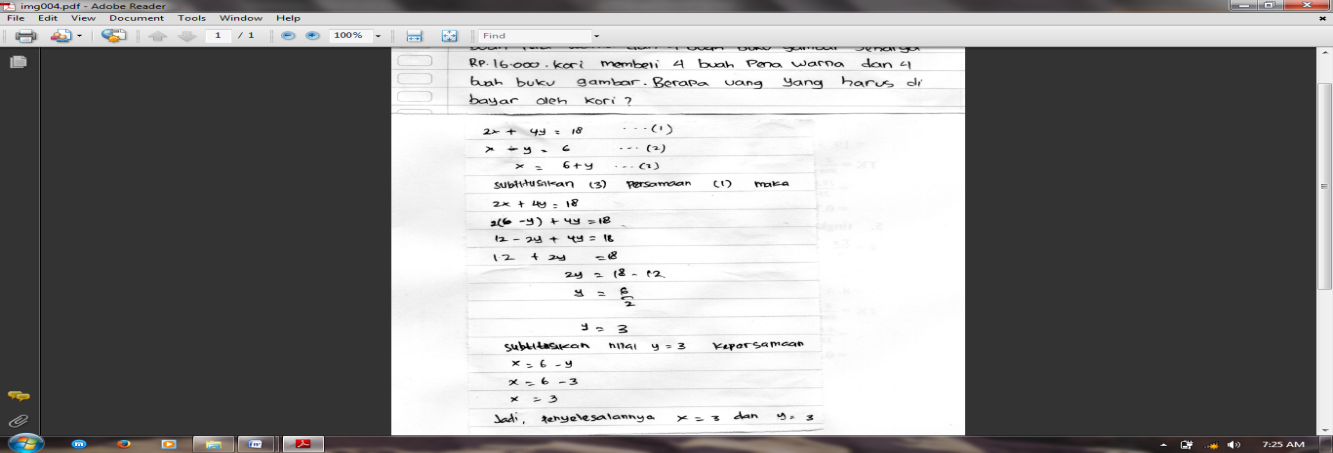 img004.pdf - Adobe Reader
File Edit View Document Tools Window Help
1 / 1 100% Find
buah buku gambar seharga
RP. 16.000. Kori membeli 4 buah Pena warna dan 4
buah buku gambar. Berapa uang yang harus di
bayar oleh kori?
2x + 4y = 18 ...(1)
x + y = 6 ...(2)
x = 6+y ...(3)
Subtitusikan (3) Persamaan (1) maka
2x + 4y = 18
2(6 -y) + 4y = 18
12 - 2y + 4y = 18
12 + 2y = 18
2y = 18 - 12
y = 6
2
y = 3
Subtitusikan nilai y = 3 kepersamaan
x = 6 - y
x = 6 - 3
x = 3
Jadi, Penyelesaiannya x = 3 dan y = 3
7:25 AM